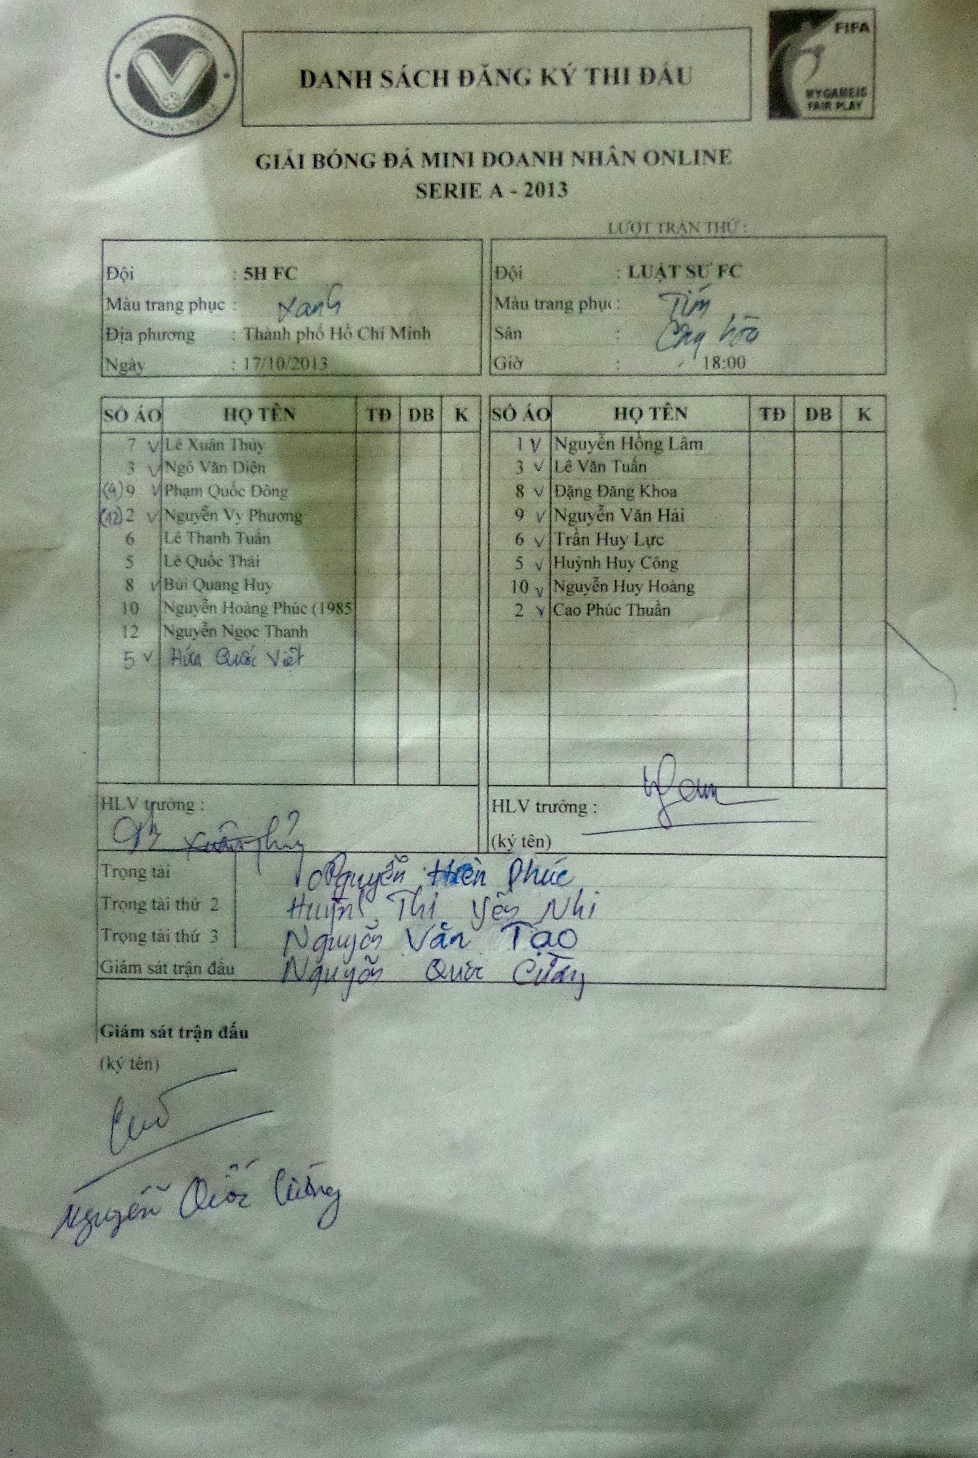 FIFA
MY GAME IS
FAIR PLAY
DANH SÁCH ĐĂNG KÝ THI ĐẤU
GIẢI BÓNG ĐÁ MINI DOANH NHÂN ONLINE
SERIE A - 2013
LƯỢT TRẬN THỨ :
Đội : 5H FC
Màu trang phục : xanh
Địa phương : Thành phố Hồ Chí Minh
Ngày : 17/10/2013
Đội : LUẬT SƯ FC
Màu trang phục : Tím
Sân :
Giờ : 18:00
SỐ ÁO HỌ TÊN TĐ DB K
7 v Lê Xuân Thủy
3 v Ngô Văn Diện
(4) 9 v Phạm Quốc Đông
(12) 2 v Nguyễn Vy Phương
6 Lê Thanh Tuấn
5 Lê Quốc Thái
8 v Bùi Quang Huy
10 Nguyễn Hoàng Phúc (1985
12 Nguyễn Ngọc Thanh
5 v Hứa Quốc Việt
SỐ ÁO HỌ TÊN TĐ DB K
1 v Nguyễn Hồng Lâm
3 v Lê Văn Tuấn
8 v Đặng Đăng Khoa
9 v Nguyễn Văn Hải
6 v Trần Huy Lực
5 v Huỳnh Huy Công
10 v Nguyễn Huy Hoàng
2 v Cao Phúc Thuần
HLV trưởng :
Xuân Thủy
HLV trưởng :
(ký tên)
Trọng tài Nguyễn Hiền Phúc
Trọng tài thứ 2 Huỳnh Thị Yến Nhi
Trọng tài thứ 3 Nguyễn Văn Tạo
Giám sát trận đấu Nguyễn Quốc Cường
Giám sát trận đấu
(ký tên)
Nguyễn Quốc Cường